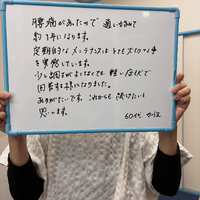 腰痛があったので通いはじめて
約1年になります。
定期的なメンテナンスはとても大切な事
を実感しています。
少し調子がよくなくても軽い症状で
回復する様になりました。
ありがたいです。これからも続けたいと
思います。
60代 女性